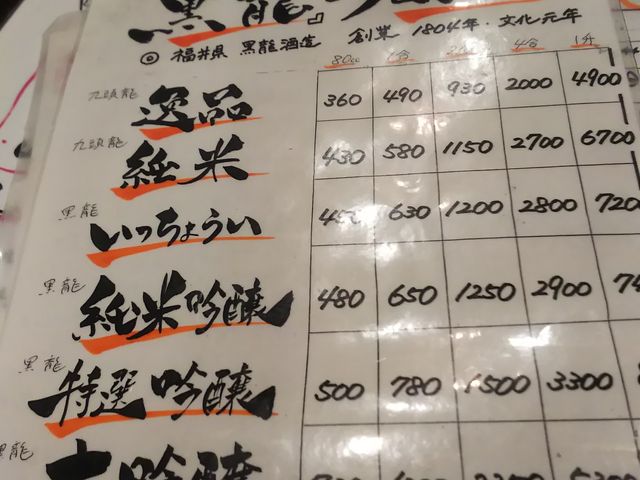 黒龍』
◎ 福井県 黒龍酒造 創業 1804年・文化元年
80cc 1合 2合 4合 1升
九頭龍 逸品 360 490 930 2000 4900
九頭龍 純米 430 580 1150 2700 6700
黒龍 いっちょうらい 630 1200 2800
黒龍 純米吟醸 480 650 1250 2900
黒龍 特選吟醸 500 780 1500 3300
黒龍 大吟醸